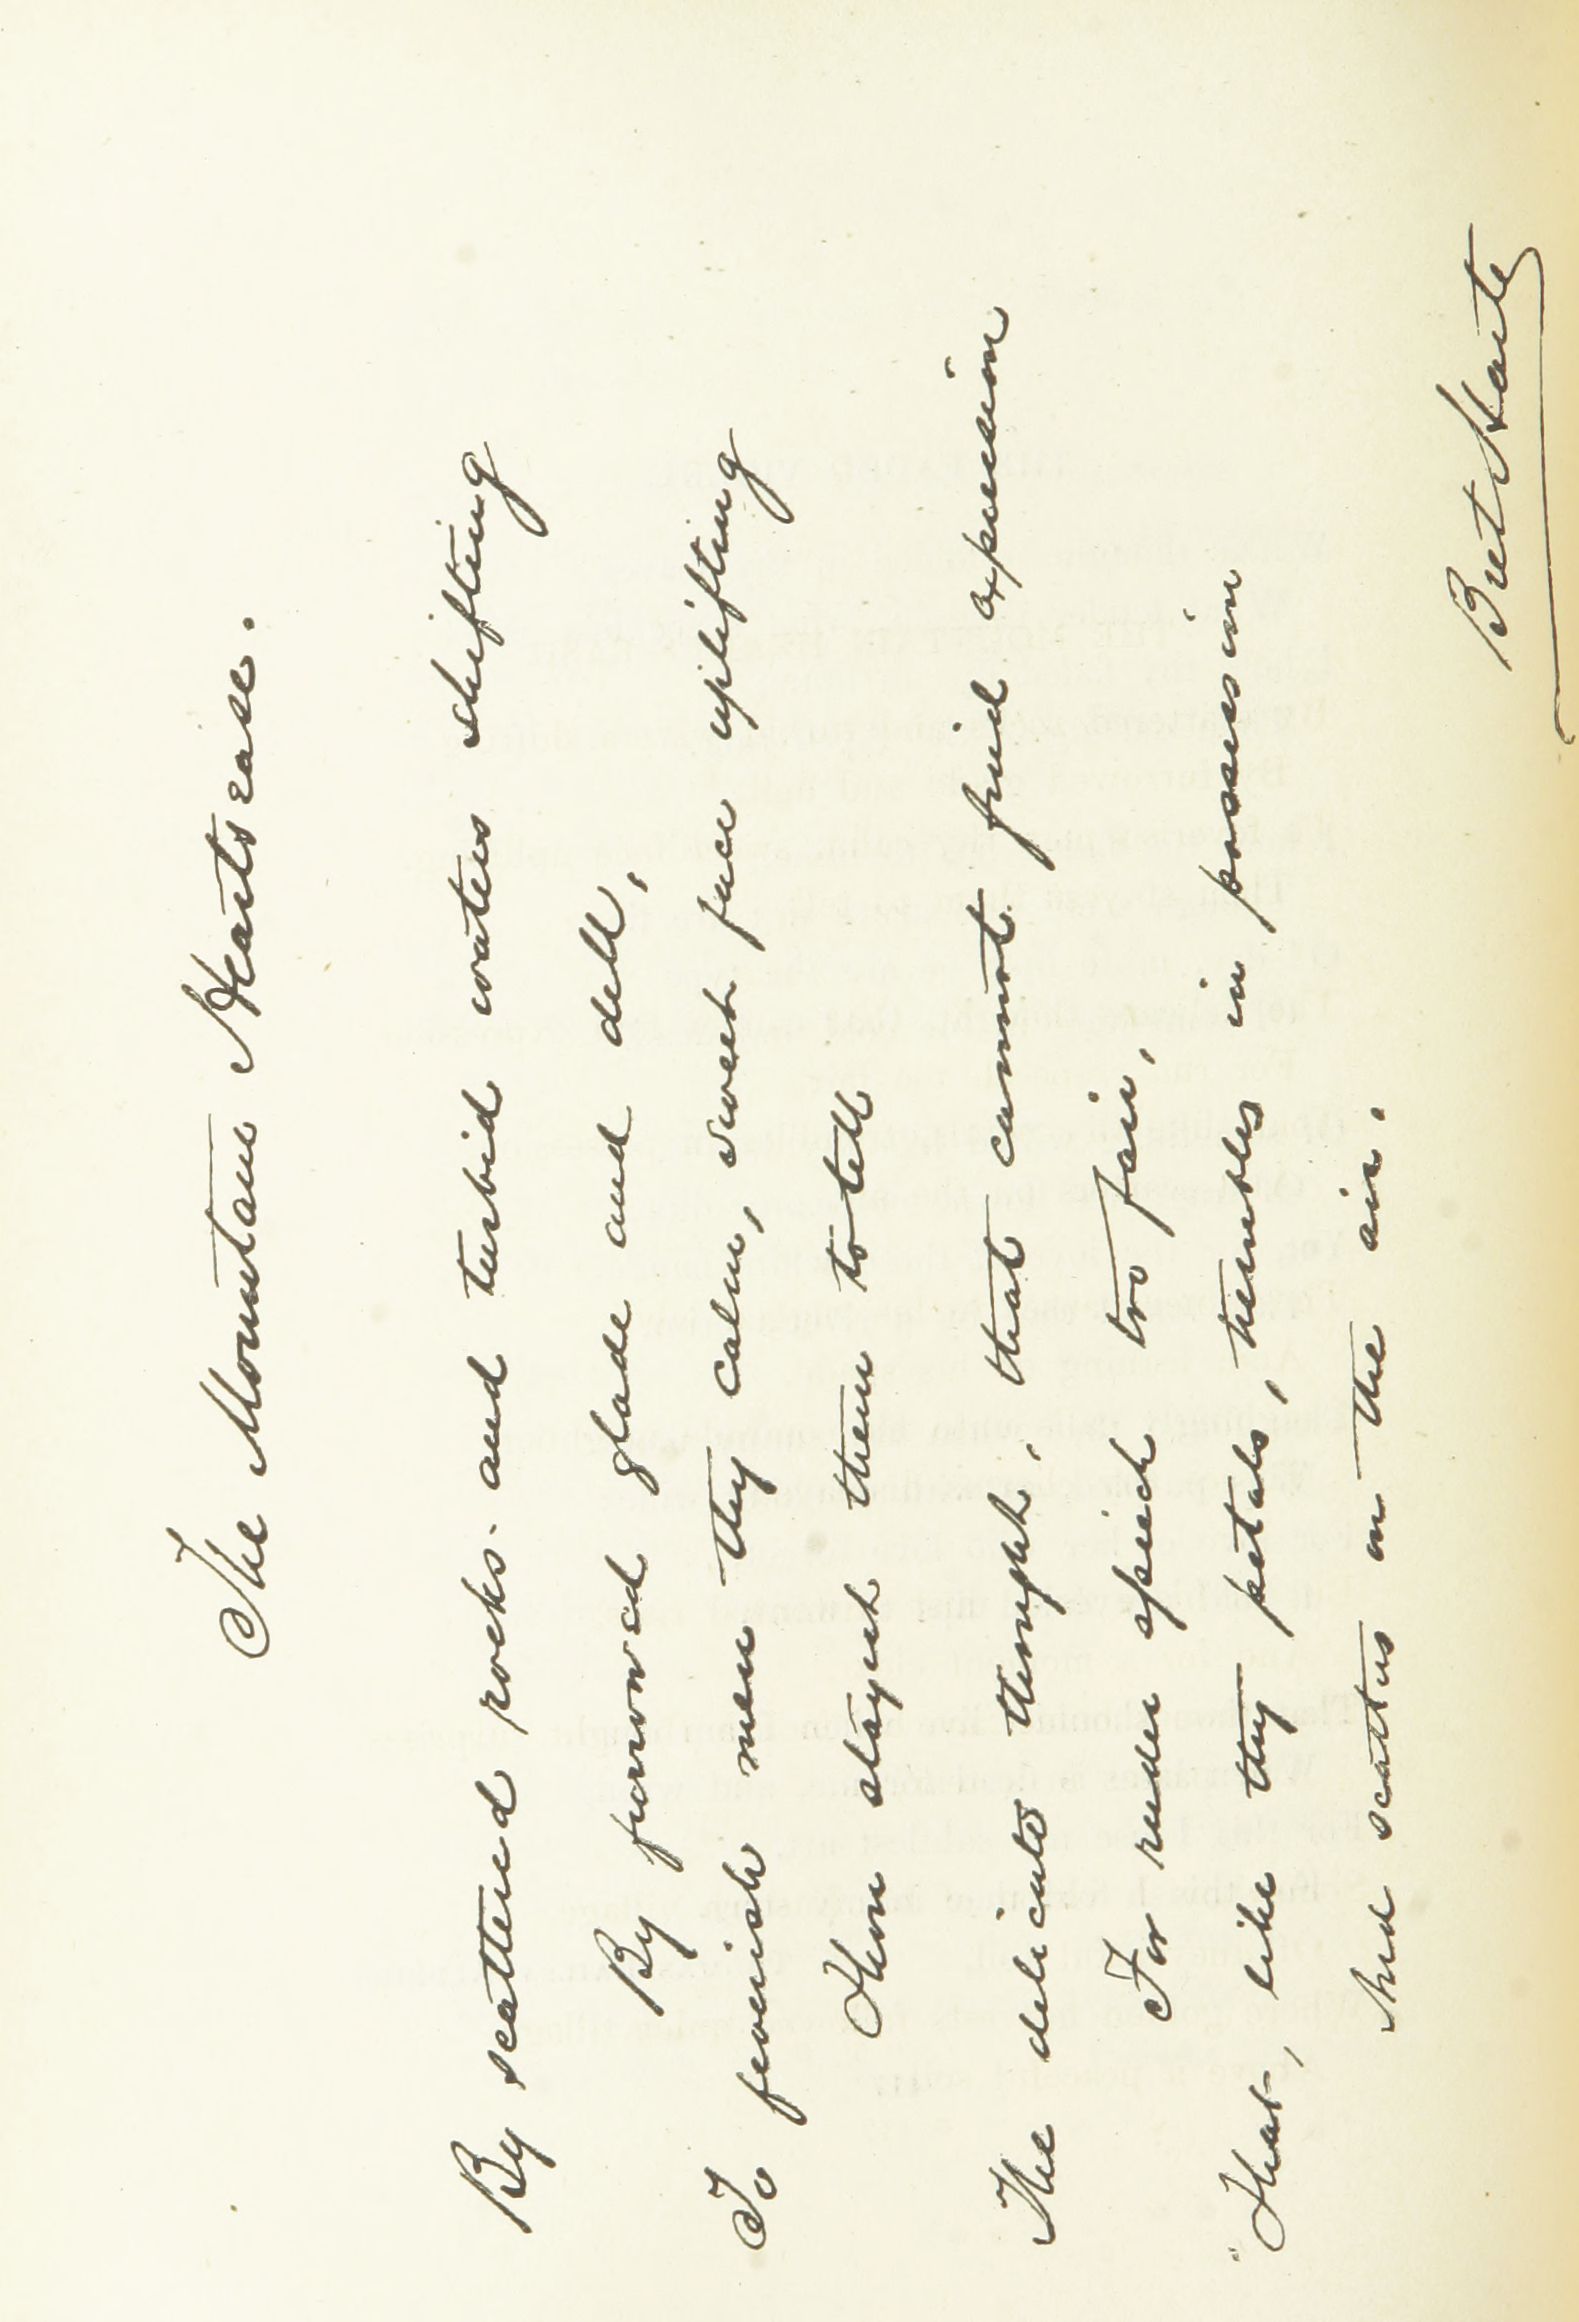 The Mountain Heartsease.
By scattered rocks and turbid waters shifting
By furrowed glade and dell,
To feverish men thy calm, sweet face uplifting
Thou stayest them to tell
The delicate thought, that cannot find expression
For ruder speech too fair,
That, like thy petals, trembles in possession
And scatters on the air.
Bret Harte